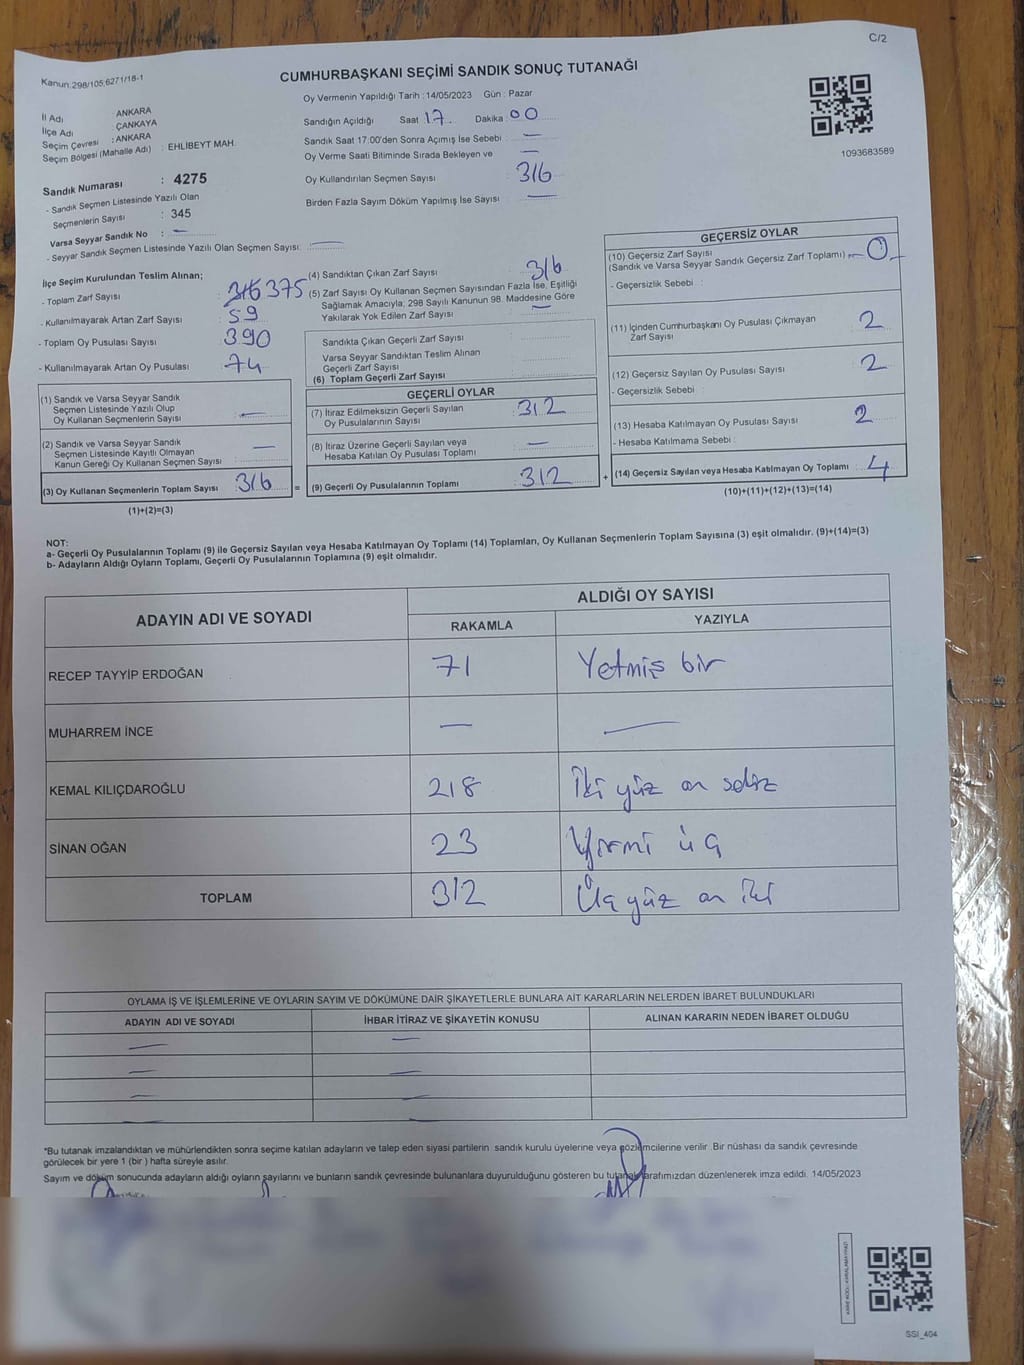 C/2
Kanun:298/105,6271/18-1
CUMHURBAŞKANI SEÇİMİ SANDIK SONUÇ TUTANAĞI
Oy Vermenin Yapıldığı Tarih : 14/05/2023 Gün : Pazar
İl Adı : ANKARA
İlçe Adı : ÇANKAYA
Seçim Çevresi : ANKARA
Seçim Bölgesi (Mahalle Adı) : EHLİBEYT MAH.
Sandığın Açıldığı Saat 17 Dakika : 00
Sandık Saat 17:00'den Sonra Açımış İse Sebebi : —
Oy Verme Saati Bitiminde Sırada Bekleyen ve —
Oy Kullandırılan Seçmen Sayısı 316
Birden Fazla Sayım Döküm Yapılmış İse Sayısı —
1093683589
Sandık Numarası : 4275
- Sandık Seçmen Listesinde Yazılı Olan
Seçmenlerin Sayısı : 345
Varsa Seyyar Sandık No : —
- Seyyar Sandık Seçmen Listesinde Yazılı Olan Seçmen Sayısı : —
İlçe Seçim Kurulundan Teslim Alınan;
- Toplam Zarf Sayısı 316 375
- Kullanılmayarak Artan Zarf Sayısı : 59
- Toplam Oy Pusulası Sayısı : 390
- Kullanılmayarak Artan Oy Pusulası : 74
(1) Sandık ve Varsa Seyyar Sandık
Seçmen Listesinde Yazılı Olup
Oy Kullanan Seçmenlerin Sayısı : —
(2) Sandık ve Varsa Seyyar Sandık
Seçmen Listesinde Kayıtlı Olmayan
Kanun Gereği Oy Kullanan Seçmen Sayısı : —
(3) Oy Kullanan Seçmenlerin Toplam Sayısı : 316 =
(1)+(2)=(3)
(4) Sandıktan Çıkan Zarf Sayısı 316
(5) Zarf Sayısı Oy Kullanan Seçmen Sayısından Fazla İse, Eşitliği
Sağlamak Amacıyla; 298 Sayılı Kanunun 98. Maddesine Göre
Yakılarak Yok Edilen Zarf Sayısı —
Sandıkta Çıkan Geçerli Zarf Sayısı :
Varsa Seyyar Sandıktan Teslim Alınan
Geçerli Zarf Sayısı
(6) Toplam Geçerli Zarf Sayısı
GEÇERLİ OYLAR
(7) İtiraz Edilmeksizin Geçerli Sayılan
Oy Pusulalarının Sayısı : 312
(8) İtiraz Üzerine Geçerli Sayılan veya
Hesaba Katılan Oy Pusulası Toplamı : —
(9) Geçerli Oy Pusulalarının Toplamı : 312 +
GEÇERSİZ OYLAR
(10) Geçersiz Zarf Sayısı
(Sandık ve Varsa Seyyar Sandık Geçersiz Zarf Toplamı) — 0 —
- Geçersizlik Sebebi :
(11) İçinden Cumhurbaşkanı Oy Pusulası Çıkmayan
Zarf Sayısı 2
(12) Geçersiz Sayılan Oy Pusulası Sayısı 2
- Geçersizlik Sebebi :
(13) Hesaba Katılmayan Oy Pusulası Sayısı 2
- Hesaba Katılmama Sebebi :
(14) Geçersiz Sayılan veya Hesaba Katılmayan Oy Toplamı : 4
(10)+(11)+(12)+(13)=(14)
NOT:
a- Geçerli Oy Pusulalarının Toplamı (9) ile Geçersiz Sayılan veya Hesaba Katılmayan Oy Toplamı (14) Toplamları, Oy Kullanan Seçmenlerin Toplam Sayısına (3) eşit olmalıdır. (9)+(14)=(3)
b- Adayların Aldığı Oyların Toplamı, Geçerli Oy Pusulalarının Toplamına (9) eşit olmalıdır.
ADAYIN ADI VE SOYADI ALDIĞI OY SAYISI
RAKAMLA YAZIYLA
RECEP TAYYİP ERDOĞAN 71 Yetmiş bir
MUHARREM İNCE — —
KEMAL KILIÇDAROĞLU 218 İki yüz on sekiz
SİNAN OĞAN 23 Yirmi üç
TOPLAM 312 Üç yüz on iki
OYLAMA İŞ VE İŞLEMLERİNE VE OYLARIN SAYIM VE DÖKÜMÜNE DAİR ŞİKAYETLERLE BUNLARA AİT KARARLARIN NELERDEN İBARET BULUNDUKLARI
ADAYIN ADI VE SOYADI İHBAR İTİRAZ VE ŞİKAYETİN KONUSU ALINAN KARARIN NEDEN İBARET OLDUĞU
— —
— —
— —
— —
*Bu tutanak imzalandıktan ve mühürlendikten sonra seçime katılan adayların ve talep eden siyasi partilerin sandık kurulu üyelerine veya gözlemcilerine verilir. Bir nüshası da sandık çevresinde
görülecek bir yere 1 (bir ) hafta süreyle asılır.
Sayım ve döküm sonucunda adayların aldığı oyların sayılarını ve bunların sandık çevresinde bulunanlara duyurulduğunu gösteren bu tutanak tarafımızdan düzenlenerek imza edildi. 14/05/2023
SSI_404